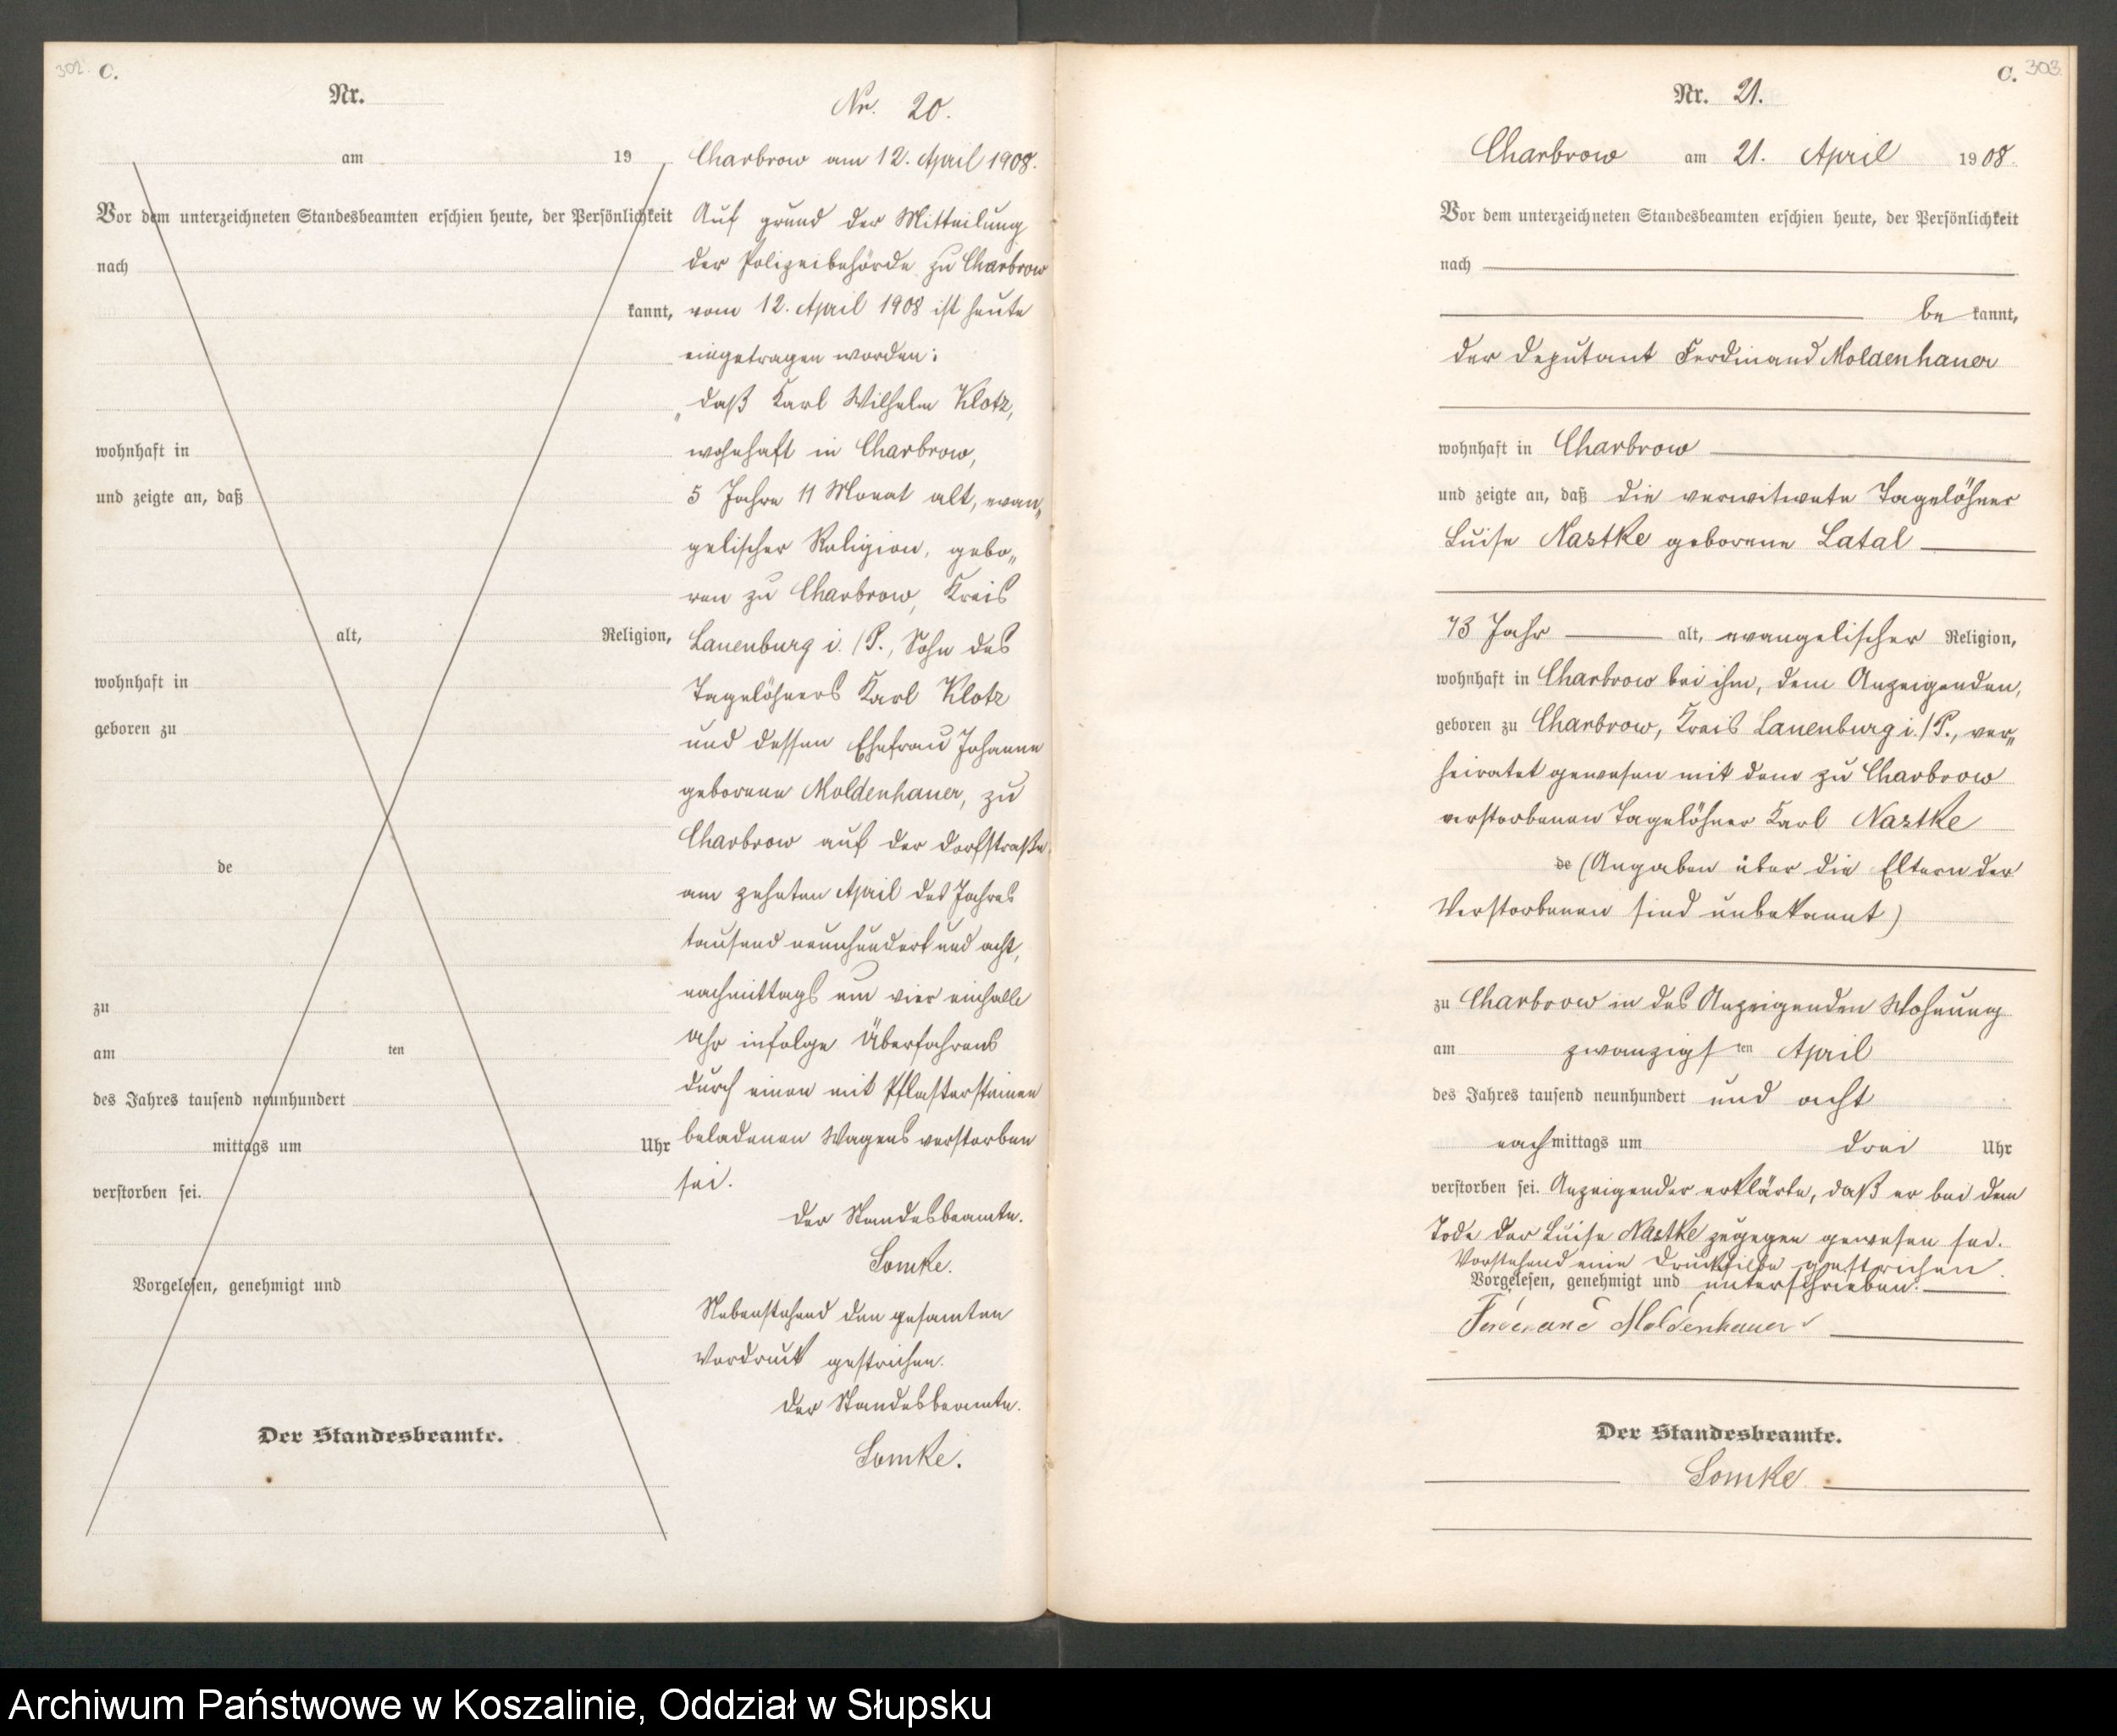 302.
C.
Nr.
am 19
Vor dem unterzeichneten Standesbeamten erschien heute, der Persönlichkeit
nach
kannt,
wohnhaft in
und zeigte an, daß
alt, Religion,
wohnhaft in
geboren zu
de
zu
am ten
des Jahres tausend neunhundert
mittags um Uhr
verstorben sei.
Vorgelesen, genehmigt und
Der Standesbeamte.
Nr. 20.
Charbrow am 12. April 1908.
Auf grund der Mitteilung
der Polizeibehörde zu Charbrow
vom 12. April 1908 ist heute
eingetragen worden:
„daß Karl Wilhelm Klotz,
wohnhaft in Charbrow,
5 Jahre 11 Monat alt, evan„
gelischer Religion, gebo„
ren zu Charbrow, Kreis
Lauenburg i./P., Sohn des
Tagelöhners Karl Klotz
und dessen Ehefrau Johanne
geborene Moldenhauer, zu
Charbrow auf der Dorfstraße
am zehnten April des Jahres
tausend neunhundert und acht,
nachmittags um vier einhalb
Uhr infolge Überfahrens
durch einen mit Pflastersteinen
beladenen Wagens verstorben
sei.
Der Standesbeamte.
Lomke.
Nebenstehend den gesamten
Vordruck gestrichen.
Der Standesbeamte.
Lomke.
C. 303
Nr. 21.
Charbrow am 21. April 1908.
Vor dem unterzeichneten Standesbeamten erschien heute, der Persönlichkeit
nach
be kannt,
der Deputant Ferdinand Moldenhauer
wohnhaft in Charbrow
und zeigte an, daß die verwitwete Tagelöhner
Luise Nastke geborene Latal
73 Jahr alt, evangelischer Religion,
wohnhaft in Charbrow bei ihm, dem Anzeigenden,
geboren zu Charbrow, Kreis Lauenburg i./P., ver„
heiratet gewesen mit dem zu Charbrow
verstorbenen Tagelöhner Karl Nastke
de (Angaben über die Eltern der
Verstorbenen sind unbekannt)
zu Charbrow in des Anzeigenden Wohnung
am zwanzigsten April
des Jahres tausend neunhundert und acht
nachmittags um drei Uhr
verstorben sei. Anzeigender erklärte, daß er bei dem
Tode der Luise Nastke zugegen gewesen sei.
Vorstehend eine Drucksilbe gestrichen.
Vorgelesen, genehmigt und unterschrieben.
Ferdinand Moldenhauer
Der Standesbeamte.
Lomke
Archiwum Państwowe w Koszalinie, Oddział w Słupsku